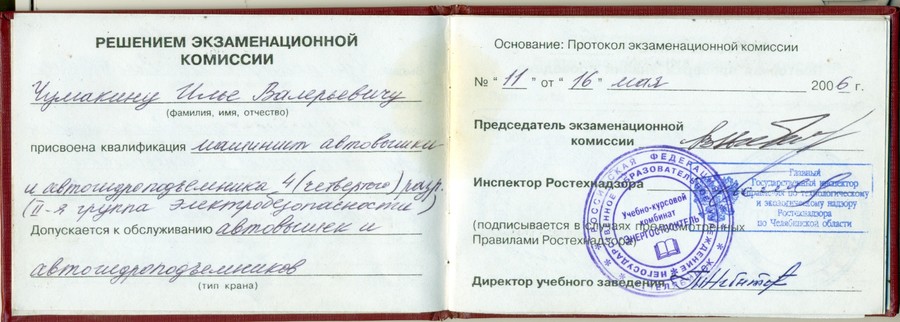 РЕШЕНИЕМ ЭКЗАМЕНАЦИОННОЙ
КОМИССИИ
Чумакину Илье Валерьевичу
(фамилия, имя, отчество)
присвоена квалификация машинист автовышки
и автогидроподъемника 4 (четвертого) разр.
(II-я группа электробезопасности)
Допускается к обслуживанию автовышек и
автогидроподъемников
(тип крана)
Основание: Протокол экзаменационной комиссии
№ "11" от "16" мая 2006 г.
Председатель экзаменационной
комиссии
Инспектор Ростехнадзора
(подписывается в случаях предусмотренных
Правилами Ростехнадзора)
Директор учебного заведения
Главный
Государственный инспектор
Управления по технологическому
и экологическому надзору
Ростехнадзора
по Челябинской области
РОССИЙСКАЯ ФЕДЕРАЦИЯ
НЕГОСУДАРСТВЕННОЕ ОБРАЗОВАТЕЛЬНОЕ УЧРЕЖДЕНИЕ
Учебно-курсовой
комбинат
ЧЕЛЯБИНСК